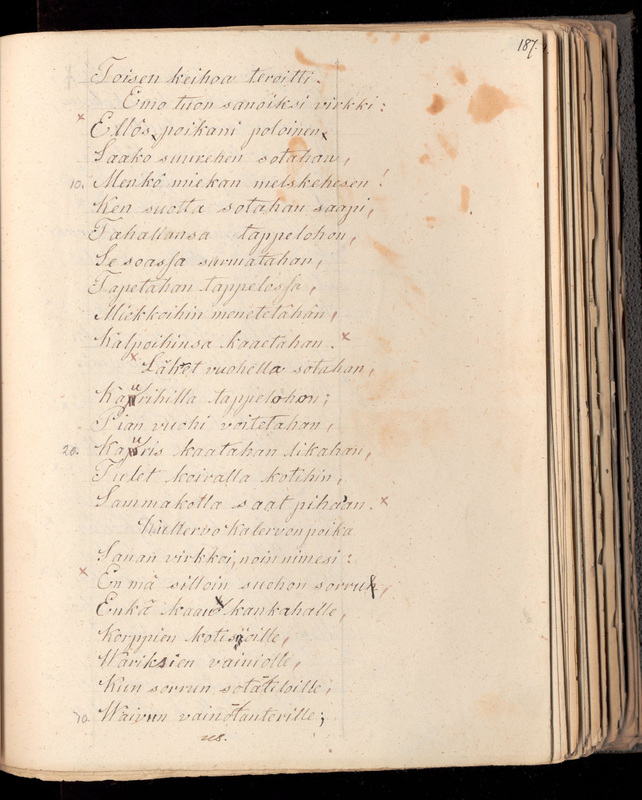 187.
Toisen keihoa teroitti.
Emo tuon sanoiksi virkki:
× Ellös, poikani poloinen,
Saako suurehen sotahan,
10. Menkö miekan melskehesen!
Ken suotta sotahan saapi,
Tahallansa tappelohon,
Se soassa surmatahan,
Tapetahan tappelossa,
Miekkoihin menetetähän,
Kalpoihinsa kaaetahan. ×
× Lähet vuohella sotahan,
Kaurihilla tappelohon;
Pian vuohi voitetahan,
20. Kauris kaatahan likahan,
Tulet koiralla kotihin,
Sammakolla saat pihaan. ×
Kullervo Kalervon poika
Sanan virkkoi, noin nimesi:
× En mä silloin suohon sorru,
Enkä kaau kankahalle,
Korppien kotisioille,
Wariksien vainiolle,
Kun sorrun sotatiloille,
30. Waivun vainotanterille;